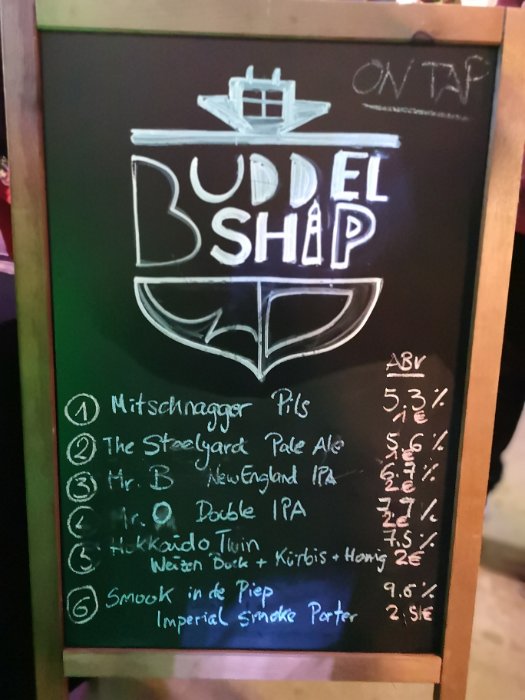 ON TAP
BUDDEL
SHIP
ABV
① Mitschnagger Pils 5.3%
1€
② The Steelyard Pale Ale 5.6%
1€
③ Mr. B New England IPA 6.7%
2€
④ Mr. O Double IPA 7.7%
2€
⑤ Hokkaido Twin 7.5%
Weizen Bock + Kürbis + Honig 2€
⑥ Smook in de Piep 9.6%
Imperial smoke Porter 2.5€